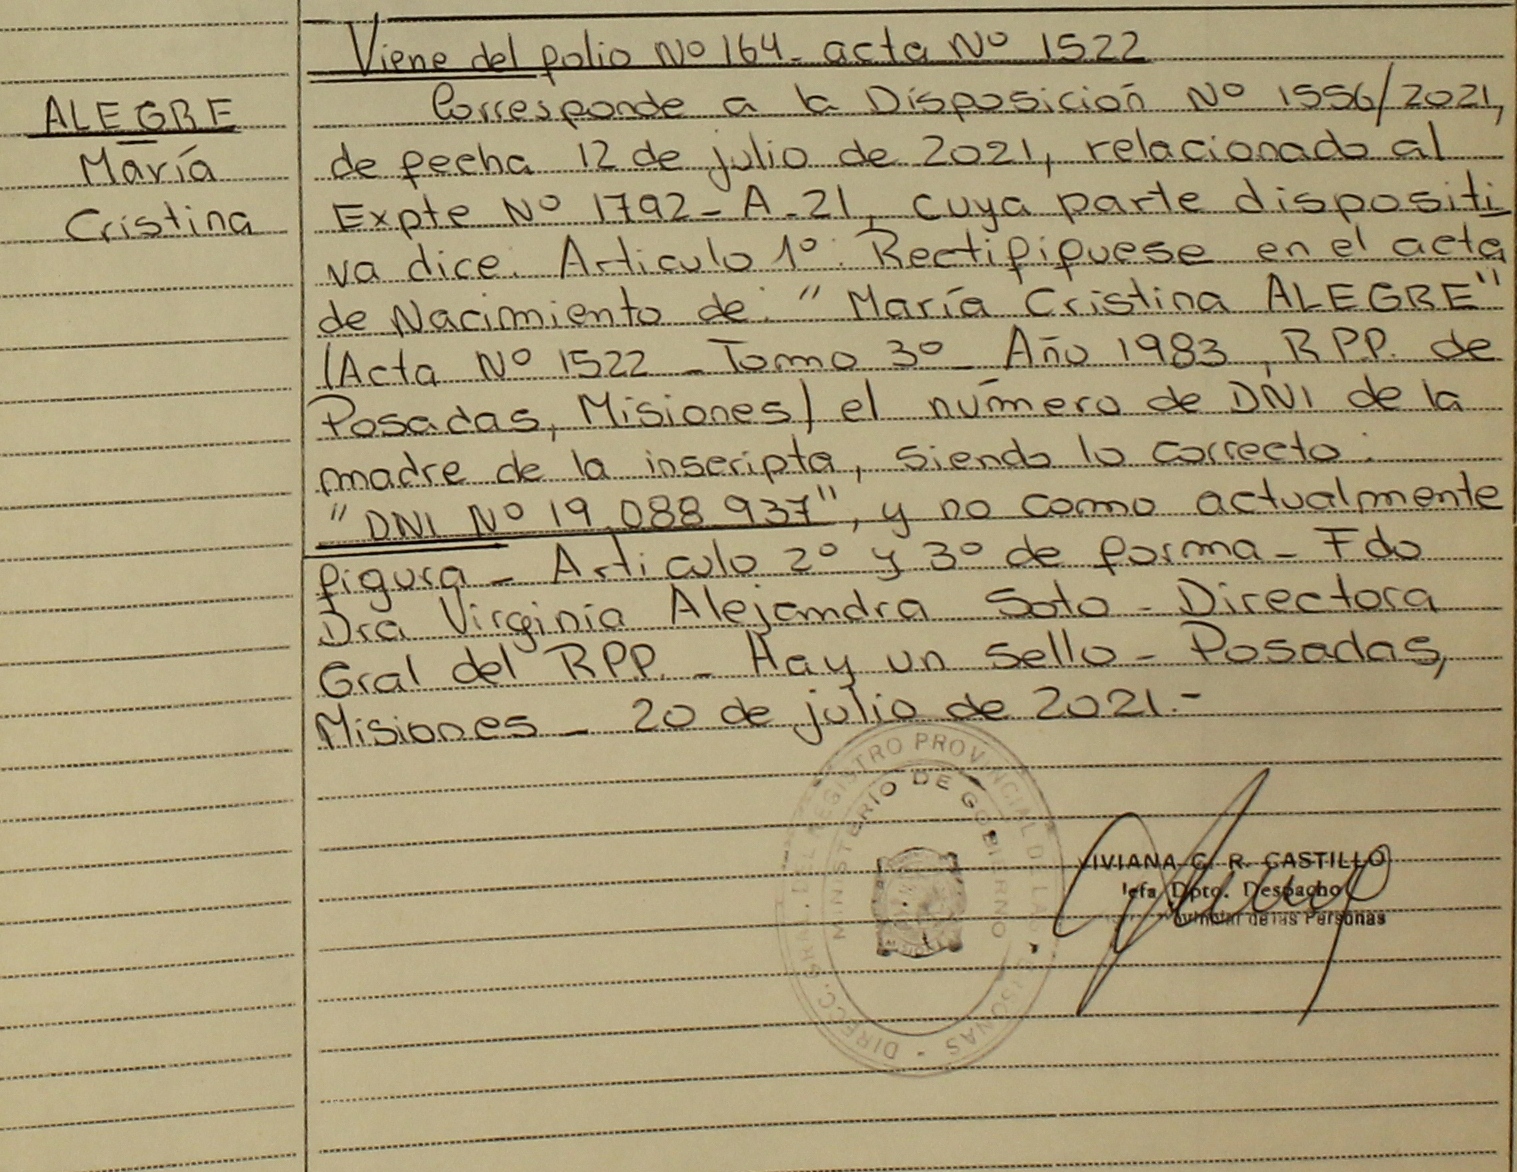 Viene del folio Nº 164 - acta Nº 1522
ALEGRE
María
Cristina
Corresponde a la Disposición Nº 1556/2021,
de fecha 12 de julio de 2021, relacionado al
Expte Nº 1792 - A - 21, cuya parte dispositi
va dice: Articulo 1º: Rectififuese en el acta
de Nacimiento de: "María Cristina ALEGRE"
(Acta Nº 1522 - Tomo 3º - Año 1983, R.P.P. de
Posadas, Misiones) el número de DNI de la
madre de la inscripta, siendo lo correcto:
"DNI Nº 19.088.937", y no como actualmente
figura - Articulo 2º y 3º de forma - Fdo
Dra Virginia Alejandra Soto - Directora
Gral del RPP. - Hay un sello - Posadas,
Misiones - 20 de julio de 2021.-
DIRECC. GRAL. DEL REGISTRO PROVINCIAL DE LAS PERSONAS -
MINISTERIO DE GOBIERNO
VIVIANA C. R. CASTILLO
Jefa Dpto. Despacho
Provincial de las Personas